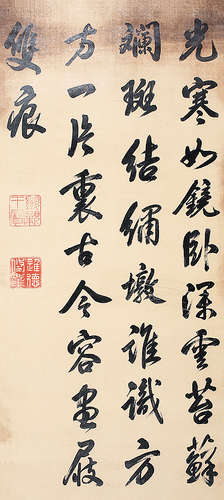 光寒如鏡臥深雲苔蘚
斕斑結繡墩誰識方
方一片裏古今容盡屐
雙痕